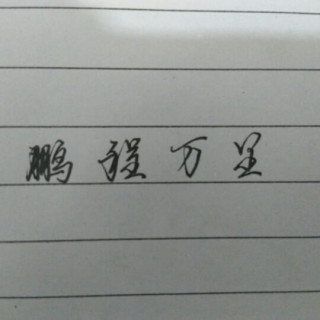 鹏程万里